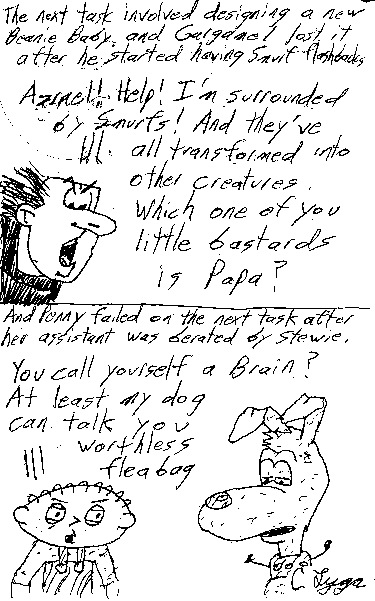 The next task involved designing a new
Beanie Baby, and Gargamel lost it
after he started having Smurf flashbacks
Azrael! Help! I'm surrounded
by Smurfs! And they've
all transformed into
other creatures.
Which one of you
little bastards
is Papa?
And Penny failed on the next task after
her assistant was berated by Stewie.
You call yourself a Brain?
At least my dog
can talk you
worthless
fleabag